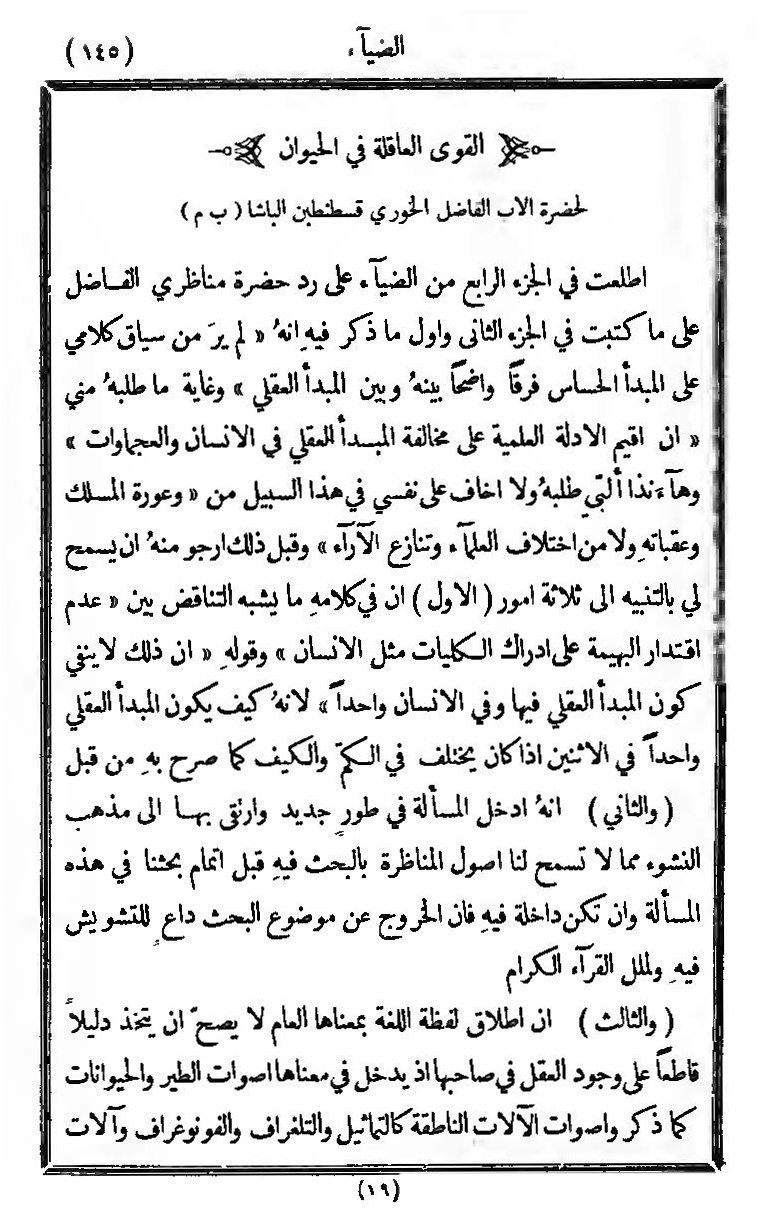 الضيآء
(١٤٥)
القوى العاقلة في الحيوان
لحضرة الاب الفاضل الخوري قسطنطين الباشا ( ب م )
اطلعت في الجزء الرابع من الضيآء على رد حضرة مناظري الفاضل
على ما كتبت في الجزء الثانى واول ما ذكر فيهِ انهُ « لم يرَ من سياق كلامي
على المبدأ الحساس فرقًا واضحًا بينهُ وبين المبدأ العقلي » وغاية ما طلبهُ مني
« ان اقيم الادلة العلمية على مخالفة المبدأ العقلي في الانسان والعجماوات »
وهآءنذا ألبّي طلبهُ ولا اخاف على نفسي في هذا السبيل من « وعورة المسلك
وعقباتهِ ولا من اختلاف العلمآء وتنازع الآرآء » وقبل ذلك ارجو منهُ ان يسمح
لي بالتنبيه الى ثلاثة امور ( الاول ) ان في كلامهِ ما يشبه التناقض بين « عدم
اقتدار البهيمة على ادراك الكليات مثل الانسان » وقولهِ « ان ذلك لا ينفي
كون المبدأ العقلي فيها وفي الانسان واحدًا » لانهُ كيف يكون المبدأ العقلي
واحدًا في الاثنين اذا كان يختلف في الكمّ والكيف كما صرح بهِ من قبل
( والثاني ) انهُ ادخل المسألة في طورٍ جديد وارتقى بها الى مذهب
النشوء مما لا تسمح لنا اصول المناظرة بالبحث فيهِ قبل اتمام بحثنا في هذه
المسألة وان تكن داخلة فيهِ فان الخروج عن موضوع البحث داعٍ للتشويش
فيهِ ولملل القرآء الكرام
( والثالث ) ان اطلاق لفظة اللغة بمعناها العام لا يصحّ ان يتخذ دليلاً
قاطعًا على وجود العقل في صاحبها اذ يدخل في معناها اصوات الطير والحيوانات
كما ذكر واصوات الآلات الناطقة كالتماثيل والتلغراف والفونوغراف وآلات
(١٩)